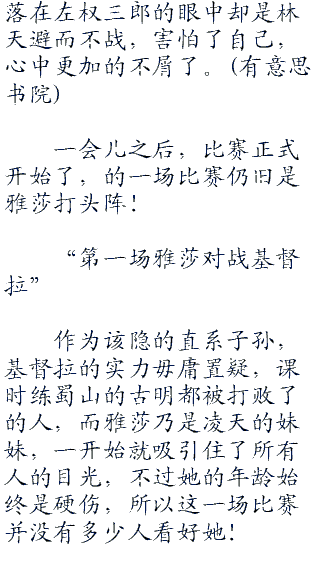 落在左权三郎的眼中却是林
天避而不战，害怕了自己，
心中更加的不屑了。(有意思
书院)
一会儿之后，比赛正式
开始了，的一场比赛仍旧是
雅莎打头阵！
“第一场雅莎对战基督
拉”
作为该隐的直系子孙，
基督拉的实力毋庸置疑，课
时练蜀山的古明都被打败了
的人，而雅莎乃是凌天的妹
妹，一开始就吸引住了所有
人的目光，不过她的年龄始
终是硬伤，所以这一场比赛
并没有多少人看好她！